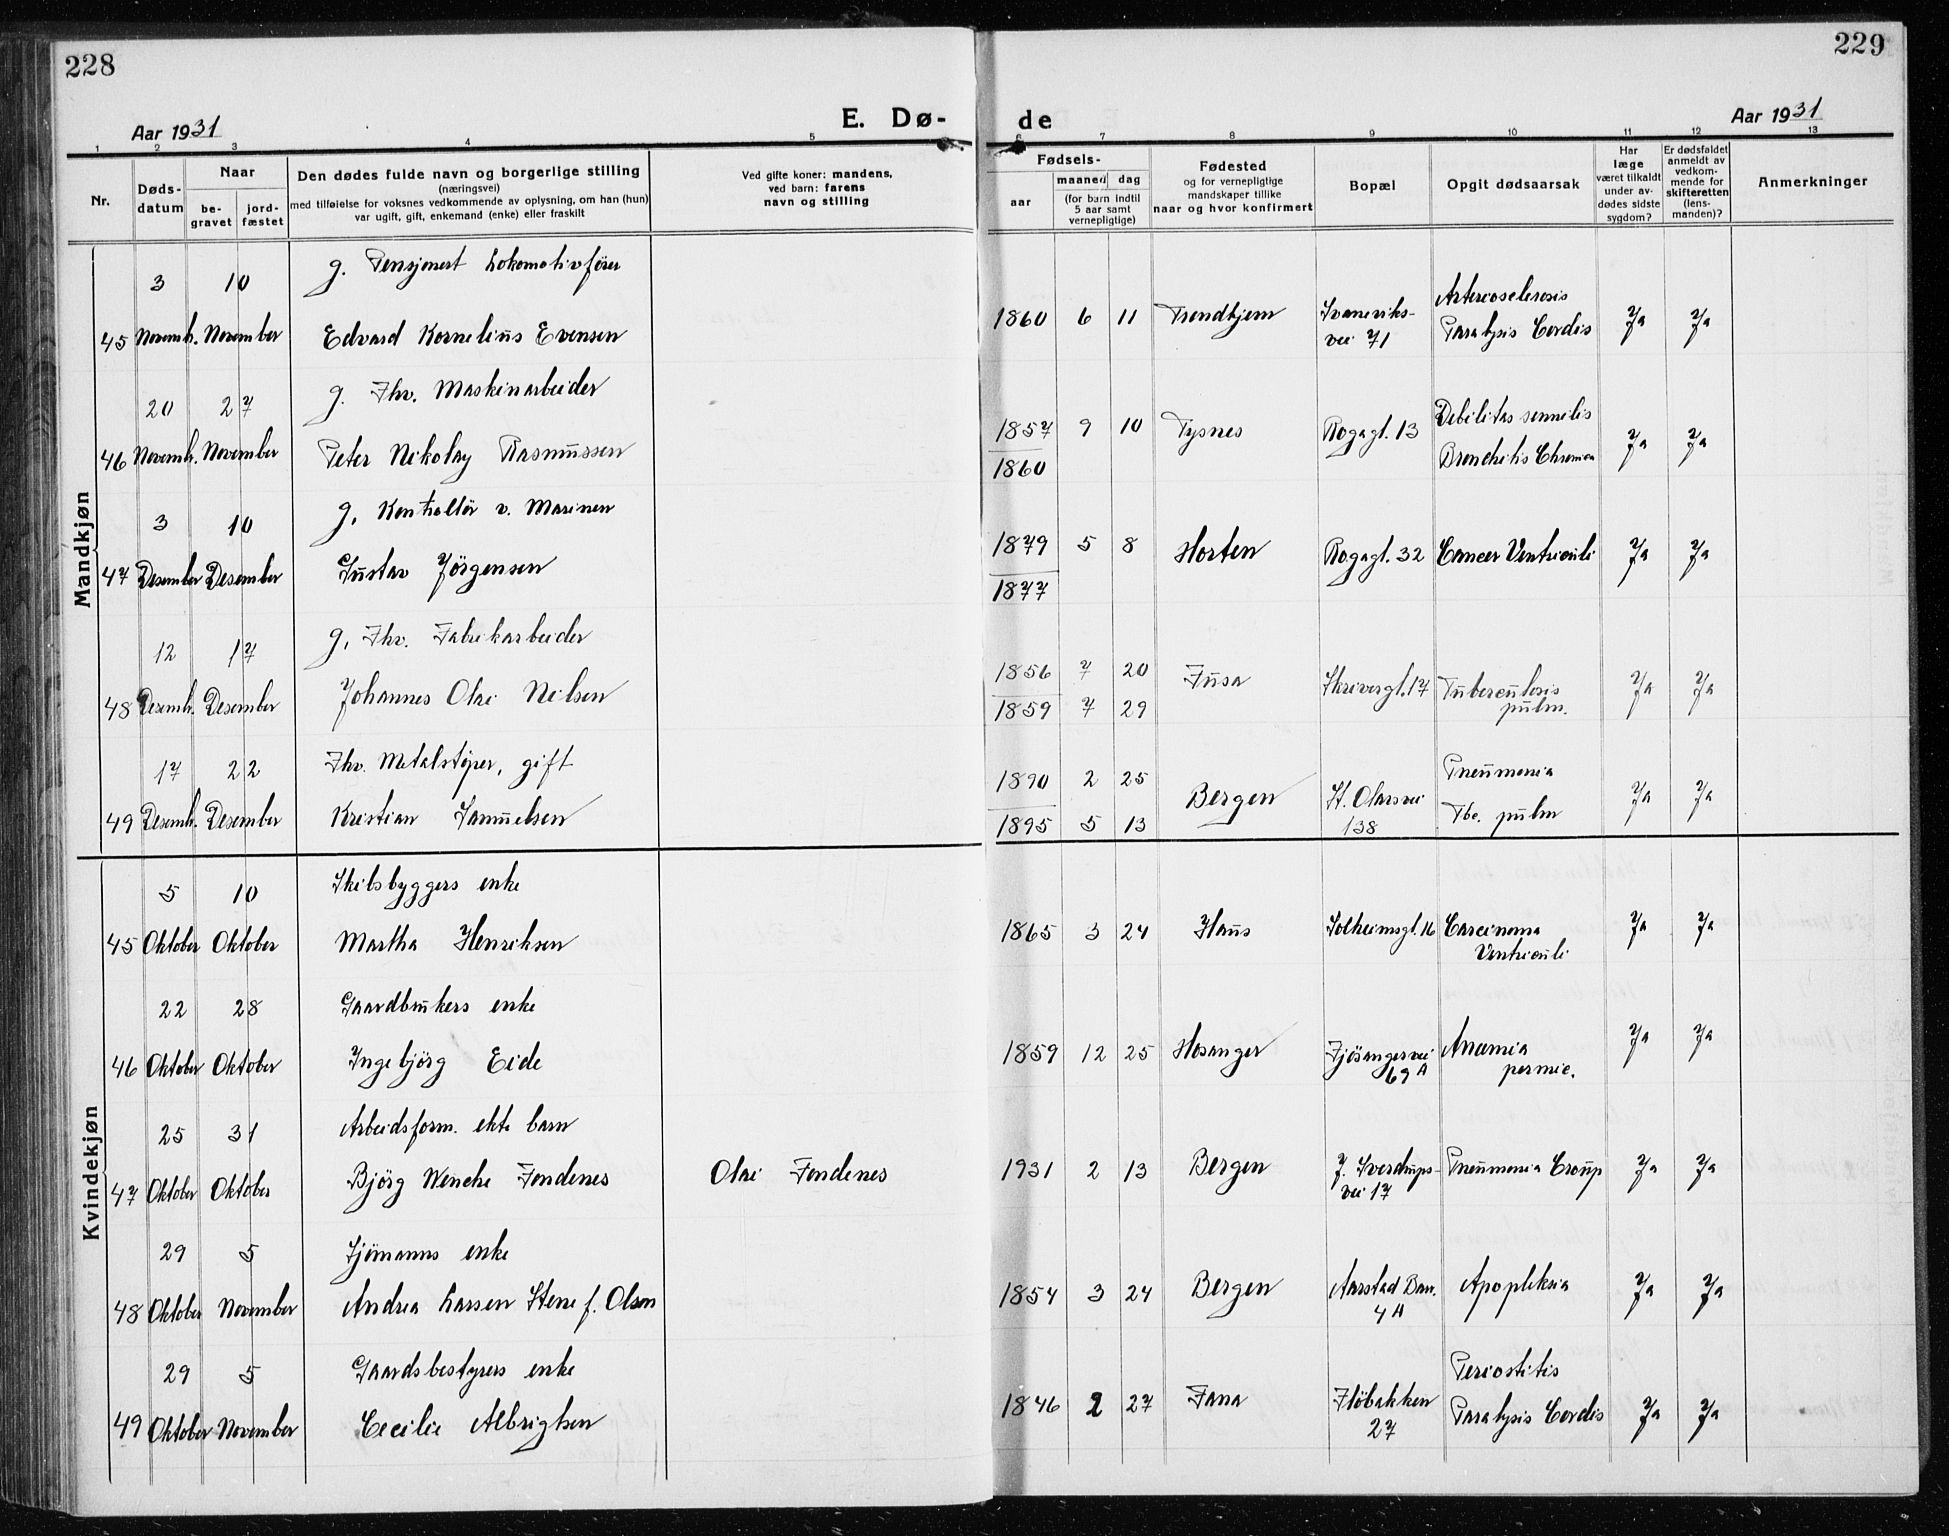 228
229
Aar 1931
E. Dø-
de
Aar 1931
1 2 3 4 5 6 7 8 9 10 11 12 13
Nr.
Døds-
datum
Naar
be-
gravet
jord-
fæstet
Den dødes fulde navn og borgerlige stilling
(næringsvei)
med tilføielse for voksnes vedkommende av oplysning, om han (hun)
var ugift, gift, enkemand (enke) eller fraskilt
Ved gifte koner: mandens,
ved barn: farens
navn og stilling
Fødsels-
aar
maaned dag
(for barn indtil
5 aar samt
vernepligtige)
Fødested
og for vernepligtige
mandskaper tillike
naar og hvor konfirmert
Bopæl
Opgit dødsaarsak
Har
læge
været tilkaldt
under av-
dødes sidste
sygdom?
Er dødsfaldet
anmeldt av
vedkom-
mende for
skifteretten
(lens-
manden)?
Anmerkninger
Mandkjøn
3 10 g. Pensjonert Lokomotivfører
Arteriosclerosis
1860 6 11 Trondhjem Svaneviks- Ja Ja
45 Novemb. November Edvard Kornelius Evensen
vei 71 Paralysis Cordis
20 27 g. Fhv. Maskinarbeider
1857 9 10 Tysnes Rogagt. 13 Debilitas sennelis
46 Novemb. November Peter Nikolay Rasmussen
1860 Bronchitis Chronica Ja Ja
3 10 g. Kontrollør v. Marinen
1879 5 8 Horten Rogagt. 32 Cancer Ventriculi Ja Ja
47 Desember Desember Gustav Jörgensen
1877
12 17 g. Fhv. Fabrikarbeider
1856 7 20 Fusa Skrivergt. 17 Tuberculosis Ja Ja
48 Desemb. Desember Johannes Olai Nilsen
1859 7 29 pulm.
17 22 Fhv. Metalstøper, gift
1890 2 25 Bergen St. Olavsvei Pneumonia Ja Ja
49 Desemb. Desember Kristian Samuelsen
1895 5 13 138 Tbc. pulm
Kvindekjøn
5 10 Skibsbyggers enke
1865 3 24 Haus Solheimsgt. 16 Carcinoma Ja Ja
45 Oktober Oktober Martha Henriksen
Ventriculi
22 28 Gaardbrukers enke
1859 12 25 Hosanger Fjösangervei Anæmia Ja Ja
46 Oktober Oktober Ingebjörg Eide
69 A pernic.
25 31 Arbeidsform. ekte barn
47 Oktober Oktober Björg Wenche Fondenes Olai Fondenes
1931 2 13 Bergen J. Sverdrups- Pneumonia Croup Ja Ja
vei 17
29 5 Sjömanns enke
1854 3 24 Bergen Aarstad Ban. Apopleksia Ja Ja
48 Oktober November Andrea Larsen Stene f. Olson
4 A
29 5 Gaardsbestyrers enke
Periostitis
1846 2 27 Fana Fløbakken Paralysis Cordis Ja Ja
49 Oktober November Cecilie Albrigtsen
27